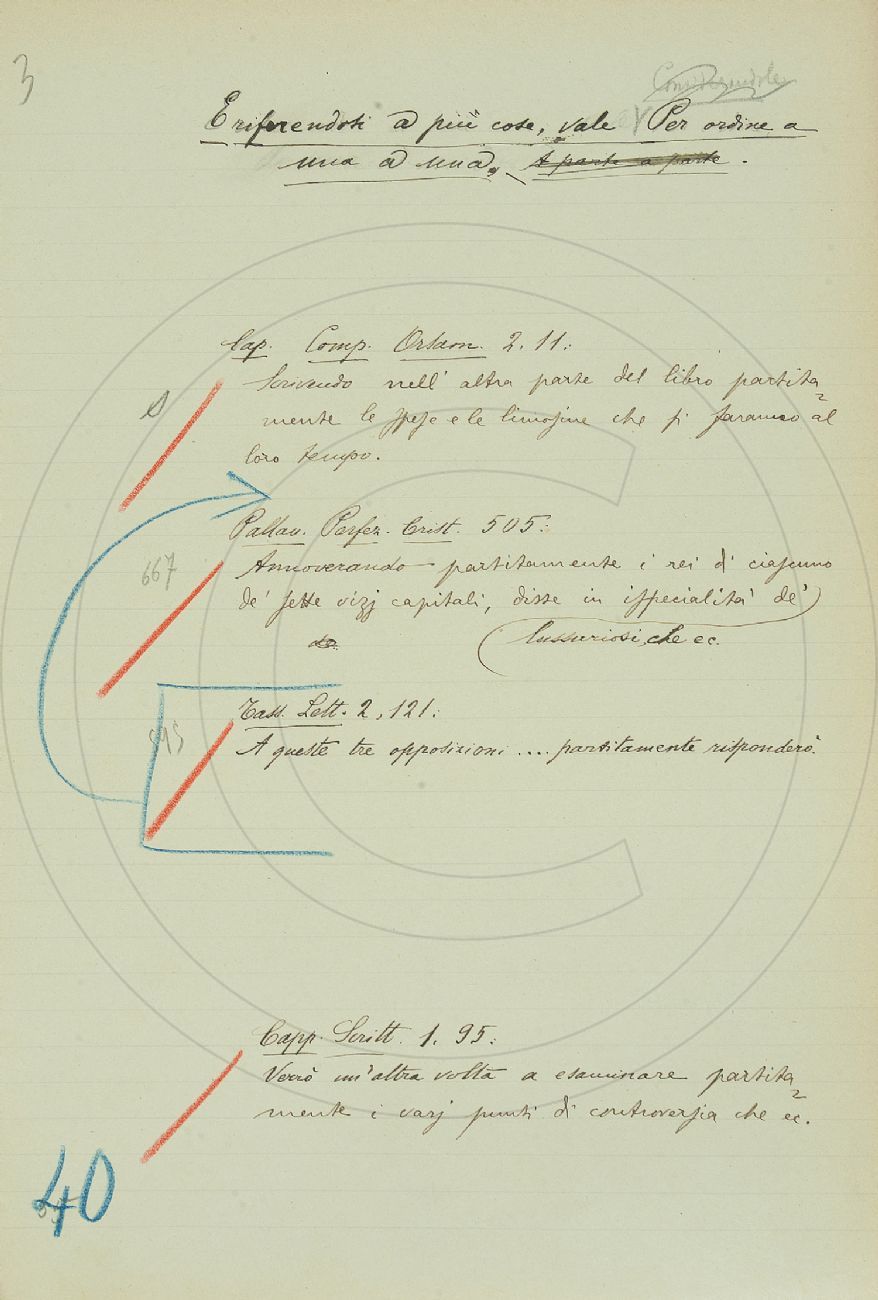 3
Considerandole
E riferendosi a più cose, vale Per ordine a
una a una, A parte a parte.
Cap. Comp. Orsam. 2. 11:
Scrivendo nell' altra parte del libro partita
mente le spese e le limosine che si faranno al
loro tempo.
Pallav. Perfez. Crist. 505:
667
Annoverando partitamente i rei di ciascuno
de' sette vizj capitali, disse in ispecialità de'
lussuriosi, che ec.
Tass. Lett. 2, 121:
A queste tre opposizioni .... partitamente risponderò.
Capp. Scritt. 1. 95:
Verrò un'altra volta a esaminare partita
mente i varj punti di controversia che ec.
40